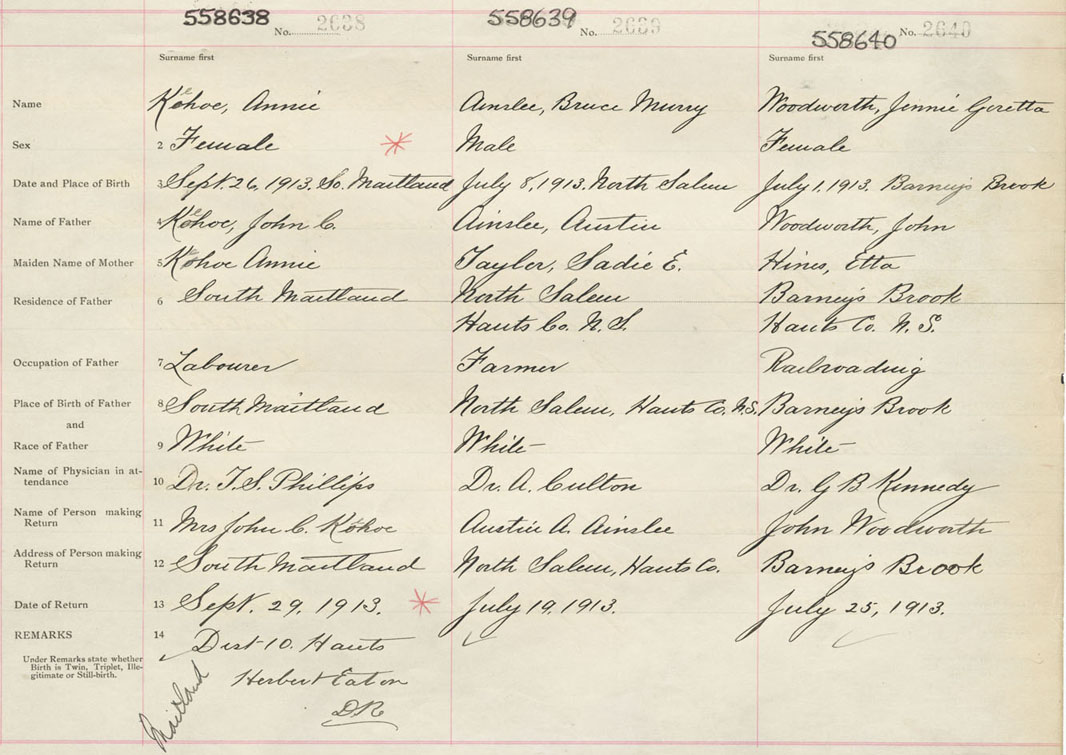 558638 558639 558640
No. 2638 No. 2639 No. 2640
Surname first Surname first Surname first
Name Kehoe, Annie Ainslee, Bruce Murry Woodworth, Jennie Goretta
Sex 2 Female * Male Female
Date and Place of Birth 3 Sept. 26, 1913, So. Maitland July 8, 1913. North Salem July 1, 1913. Barney's Brook
Name of Father 4 Kehoe, John C. Ainslee, Austin Woodworth, John
Maiden Name of Mother 5 Kehoe Annie Taylor, Sadie E. Hines, Etta
Residence of Father 6 South Maitland North Salem Barney's Brook
Hants Co. N.S. Hants Co. N.S.
Occupation of Father 7 Labourer Farmer Railroading
Place of Birth of Father 8 South Maitland North Salem, Hants Co. N.S. Barney's Brook
and
Race of Father 9 White White White
Name of Physician in at-
tendance 10 Dr. T. S. Phillips Dr. A. Culton Dr. G B Kennedy
Name of Person making
Return 11 Mrs John C. Kehoe Austin A. Ainslee John Woodworth
Address of Person making
Return 12 South Maitland North Salem, Hants Co. Barney's Brook
Date of Return 13 Sept. 29, 1913. * July 19, 1913. July 25, 1913.
REMARKS 14 Dist 10. Hants
Under Remarks state whether
Birth is Twin, Triplet, Ille-
gitimate or Still-birth.
Herbert Eaton
D.R.
Maitland